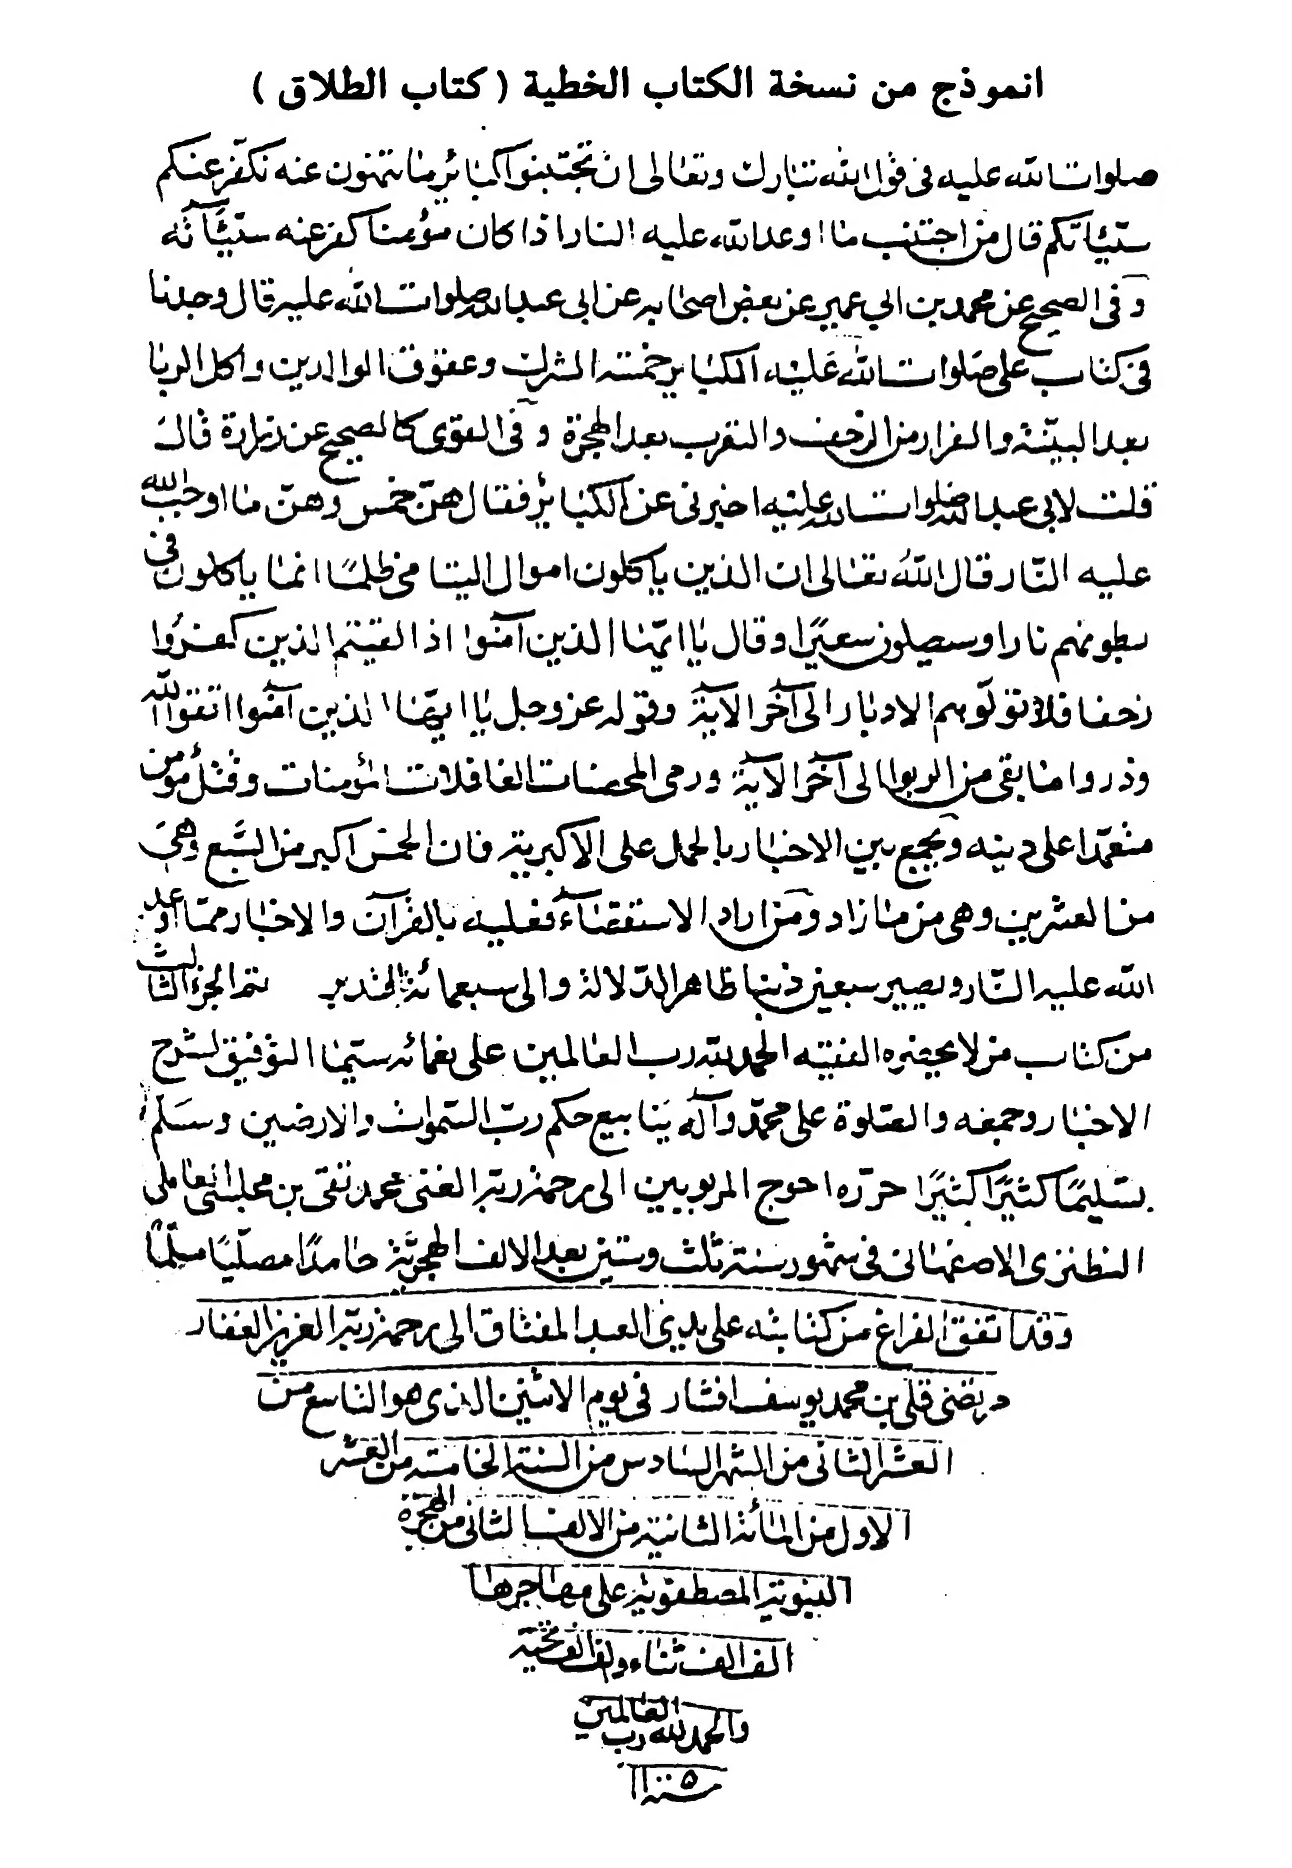 انموذج من نسخة الكتاب الخطية ( كتاب الطلاق )
صلوات الله عليه فى قول الله تبارك وتعالى ان تجتنبوا كبائر ما تنهون عنه نكفر عنكم
سيّئاتكم قال من اجتنب ما اوعد الله عليه النار اذا كان مؤمنا كفر عنه سيّئآته
وفى الصحيح عن محمد بن ابي عمير عن بعض اصحابه عن ابى عبد الله صلوات الله عليه قال وجدنا
فى كتاب على صلوات الله عليه الكبائر خمسة الشرك وعقوق الوالدين واكل الربا
بعد البيّنة والفرار من الزحف والتعرب بعد الهجرة وفى القوى كالصحيح عن زرارة قال
قلت لابى عبد الله صلوات الله عليه اخبرنى عن الكبائر فقال هنّ خمس وهنّ ما اوجب الله
عليه النّار قال الله تعالى ان الذين ياكلون اموال اليتامى ظلمًا انما ياكلون فى
بطونهم نارا وسيصلون سعيرًا وقال يا ايّها الذين آمنوا اذا لقيتم الذين كفروا
زحفا فلا تولّوهم الادبار الى آخر الآية وقوله عز وجل يا ايّها الذين آمنوا اتقوا الله
وذروا ما بقى من الربوا الى آخر الآية ورمى المحصنات الغافلات المؤمنات وقتل مؤمن
متعمّدا على دينه ويجمع بين الاخبار بالحمل على الاكبرية فان الخمس اكبر من السّبع وهى
من العشرين وهى من ما زاد ومن اراد الاستقصاء فعليه بالقرآن والاخبار ممّا اوعد
الله عليه النّار ويصير سبعين ذنبا ظاهر الدّلالة والى سبعمائة بالتدبر تم الجزء الثالث
من كتاب من لا يحضره الفقيه الحمد لله رب العالمين على نعمائه سيّما التوفيق لشرح
الاخبار وجمعه والصّلوة على محمّد وآله ينابيع حكم ربّ السّموات والارضين وسلّم
تسليمًا كثيرًا كثيرًا حرّره احوج المربوبين الى رحمة ربّه الغنى محمد تقى بن مجلسى العاملى
النطنزى الاصفهانى فى شهور سنة ثلث وستين بعد الالف الهجريّة حامدًا مصلّيًا مسلّمًا
وقد اتفق الفراغ من كتابته على يدى العبد المفتاق الى رحمة ربّه العزيز الغفار
مرتضى قلى بن محمد يوسف افشار فى يوم الاثنين الذى هو التاسع من
العشر الثانى من الشهر السادس من السنة الخامسة من العشر
الاول من المأئة الثانية من الالف الثانى من الهجرة
النبوية المصطفوية على مهاجرها
الف الف ثناء والف الف تحية
والحمد لله رب العالمين
سنة ١١٠٥